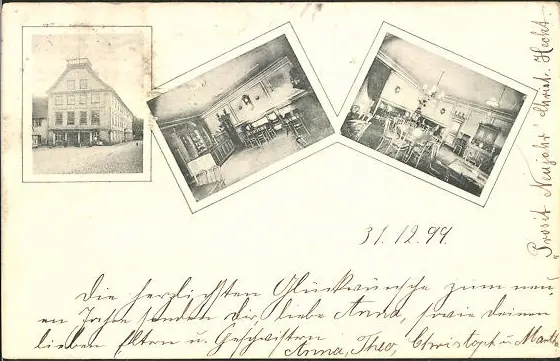 31.12.99.
Die herzlichsten Glückwünsche zum neu-
en Jahre senden Dir liebe Anna, sowie Deinen
lieben Eltern u. Geschwistern
Anna, Theo, Christoph u. Marie
"Prosit Neujahr" Christ. Hecht.